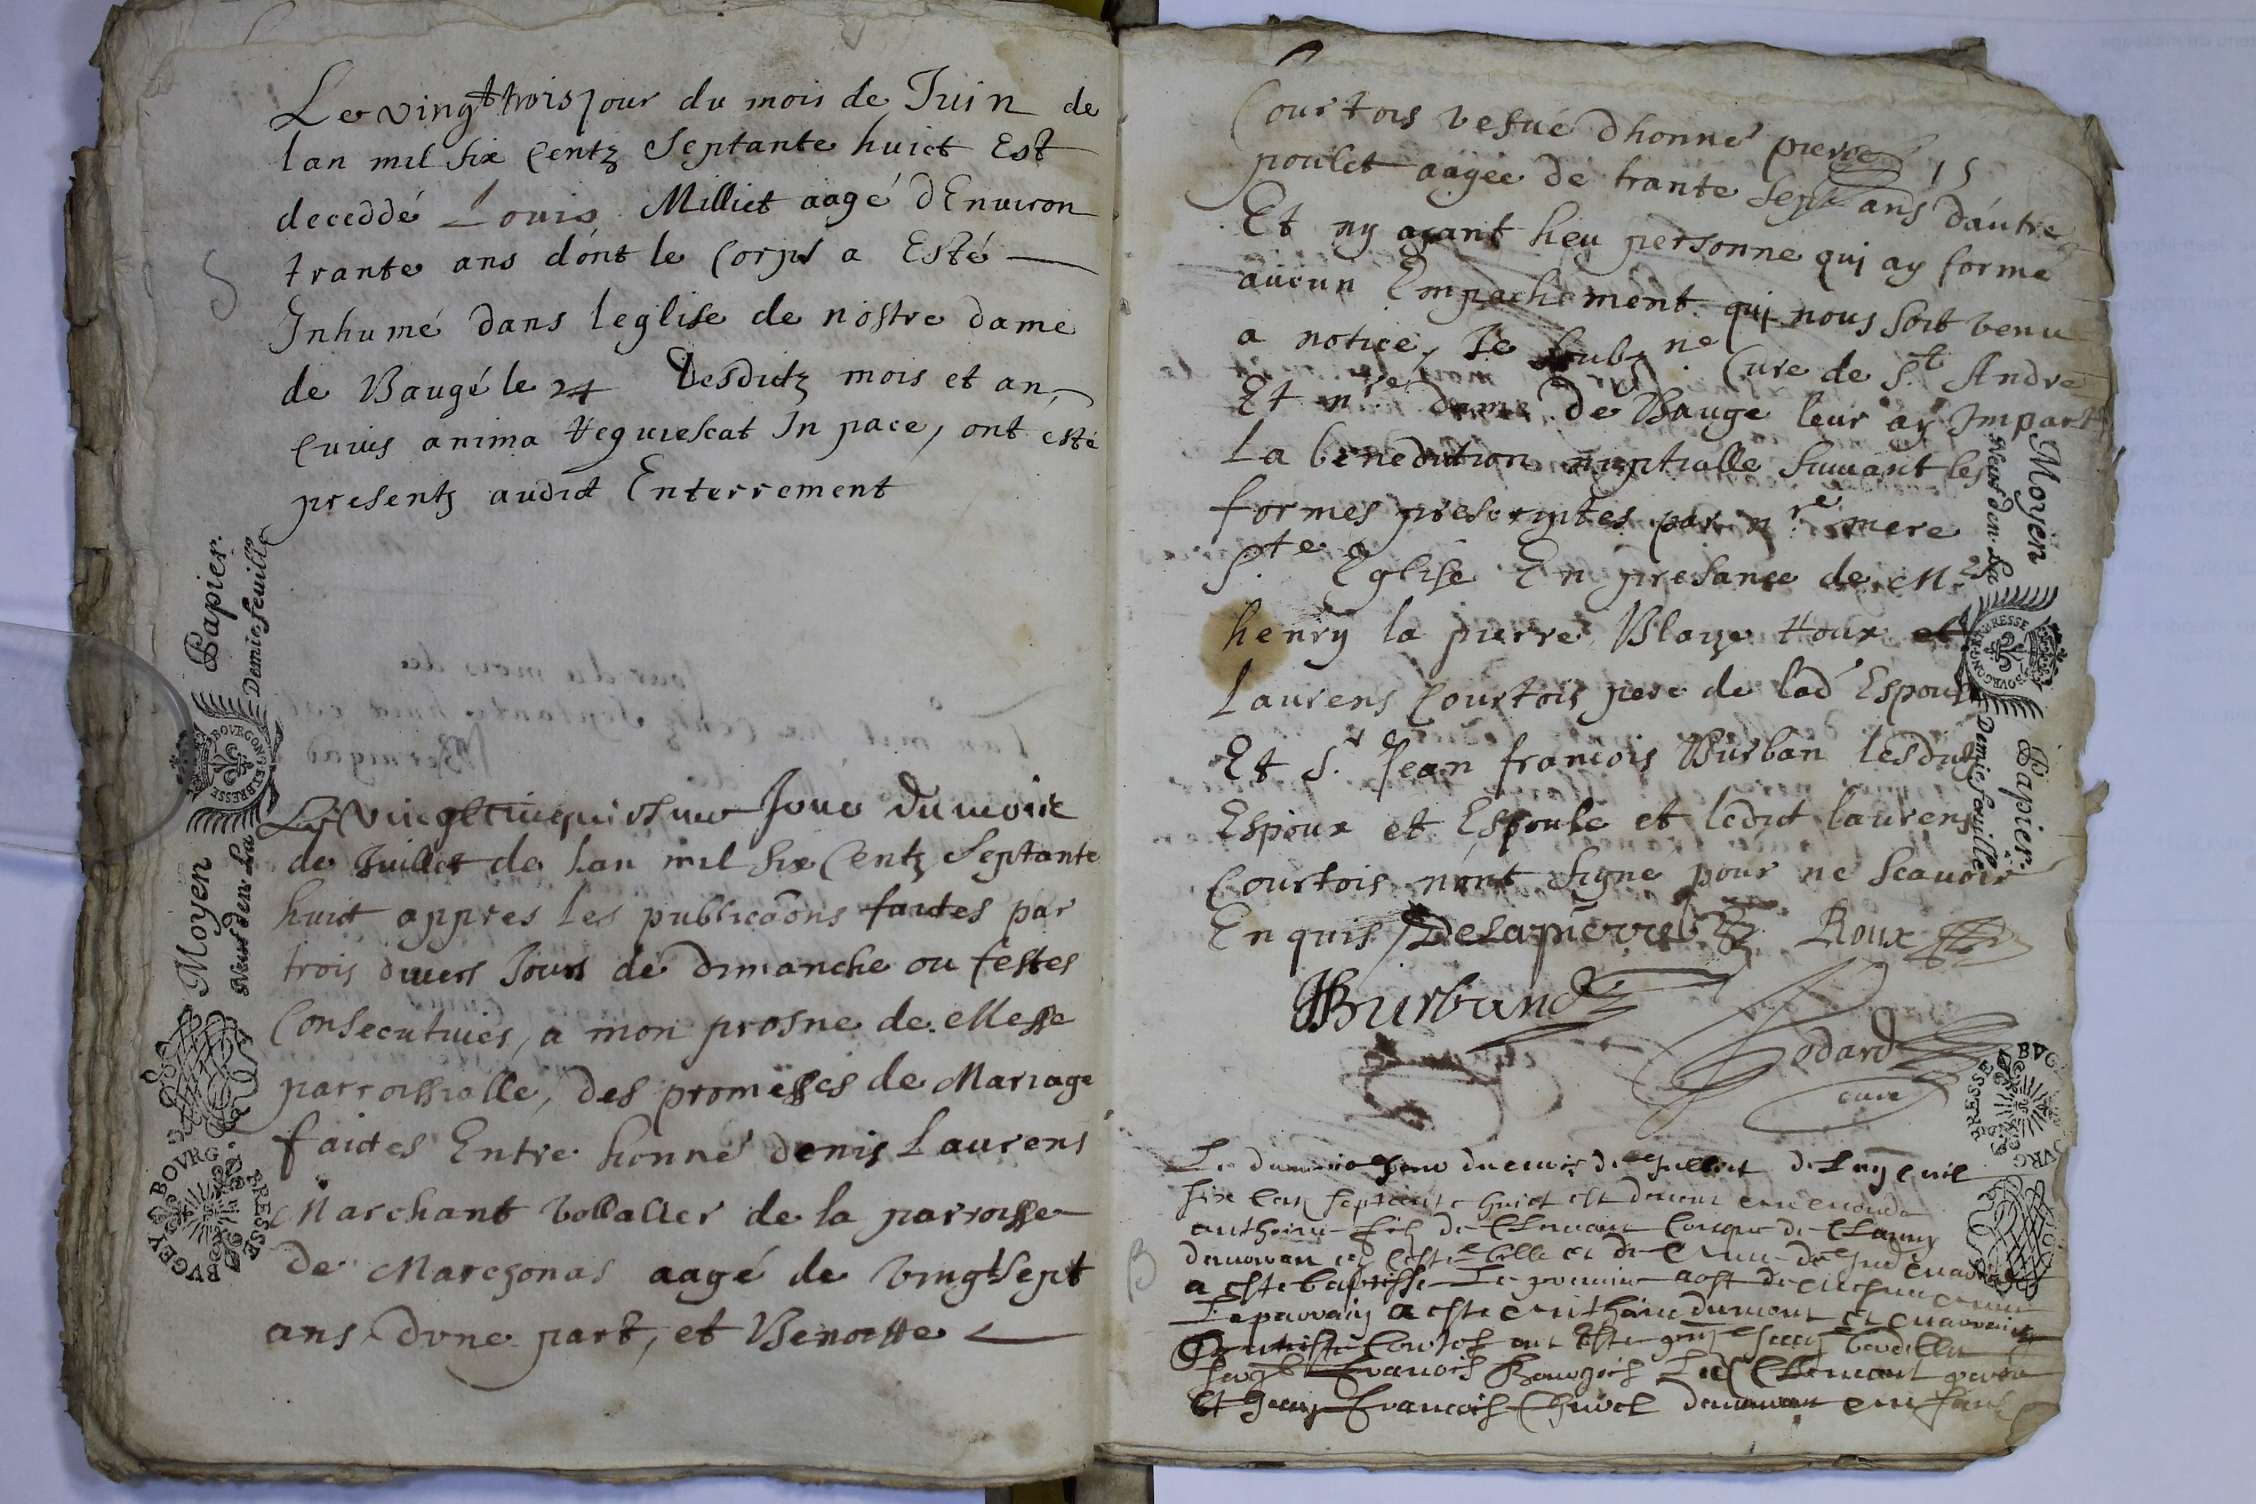 Le vingt trois jour du mois de Juin de
lan mil six Centz Septante huict Est
deceddé Louis Milliet aagé dEnuiron
trante ans dont le Corps a Esté
S
Inhumé dans leglise de nostre dame
de Baugé le 24 desdictz mois et an,
Cuius anima requiescat In pace, ont esté
presentz audict Enterrement
Moyen Papier.
Neuf den. La Demie feuille
BOVRGONG ET BRESSE
BOVRG BRESSE BVGEY
Le vingt cinquiesme Jour du mois
de Juillet de lan mil six Centz Septante
huict appres les publicaõns faictes par
trois diuers Jours de dimanche ou festes
Consecutiues, a mon prosne de Messe
parroissialle, des promesses de Mariage
faictes Entre honne denis Laurens
Marchant vollallier de la parroisse
de Marczonas aagé de vingt sept
ans dvne part, et Benoiste
15
Courtois vefue dhonne pierre
poulet aagée de trante sept ans dautre
Et ny ayant heu personne qui ay forme
aucun Empachement qui nous soit venu
a notice, Je soubz.ne Cure de S.t Andre
Et n.re dame de Bauge leur ay Impart
La benediction nuptialle suiuant les
formes prescriptes par n.re mere
S.te Eglise En presance de M.re
henry la pierre Blaize Roux et
Laurens Courtois pere de lad Espouse
Et S.r Jean francois Burban lesdictz
Espoux et Espouse et ledict laurens
Courtois nont signe pour ne scauoir
Enquis Delapierre Roux
Burband
Godard
cure
Moyen Papier.
Neuf den. La Demie feuille
BOVRGONG ET BRESSE
BVG BRESSE BOVRG
Le jour du mois de Juillet de Lan mil
six cens septante huict est
anthoine filz de Clemant de
B
a este baptisse Le premier aost
Le parrain a este anthoine dumont et marraine
ont este
francois Clemant
Et Jean francois